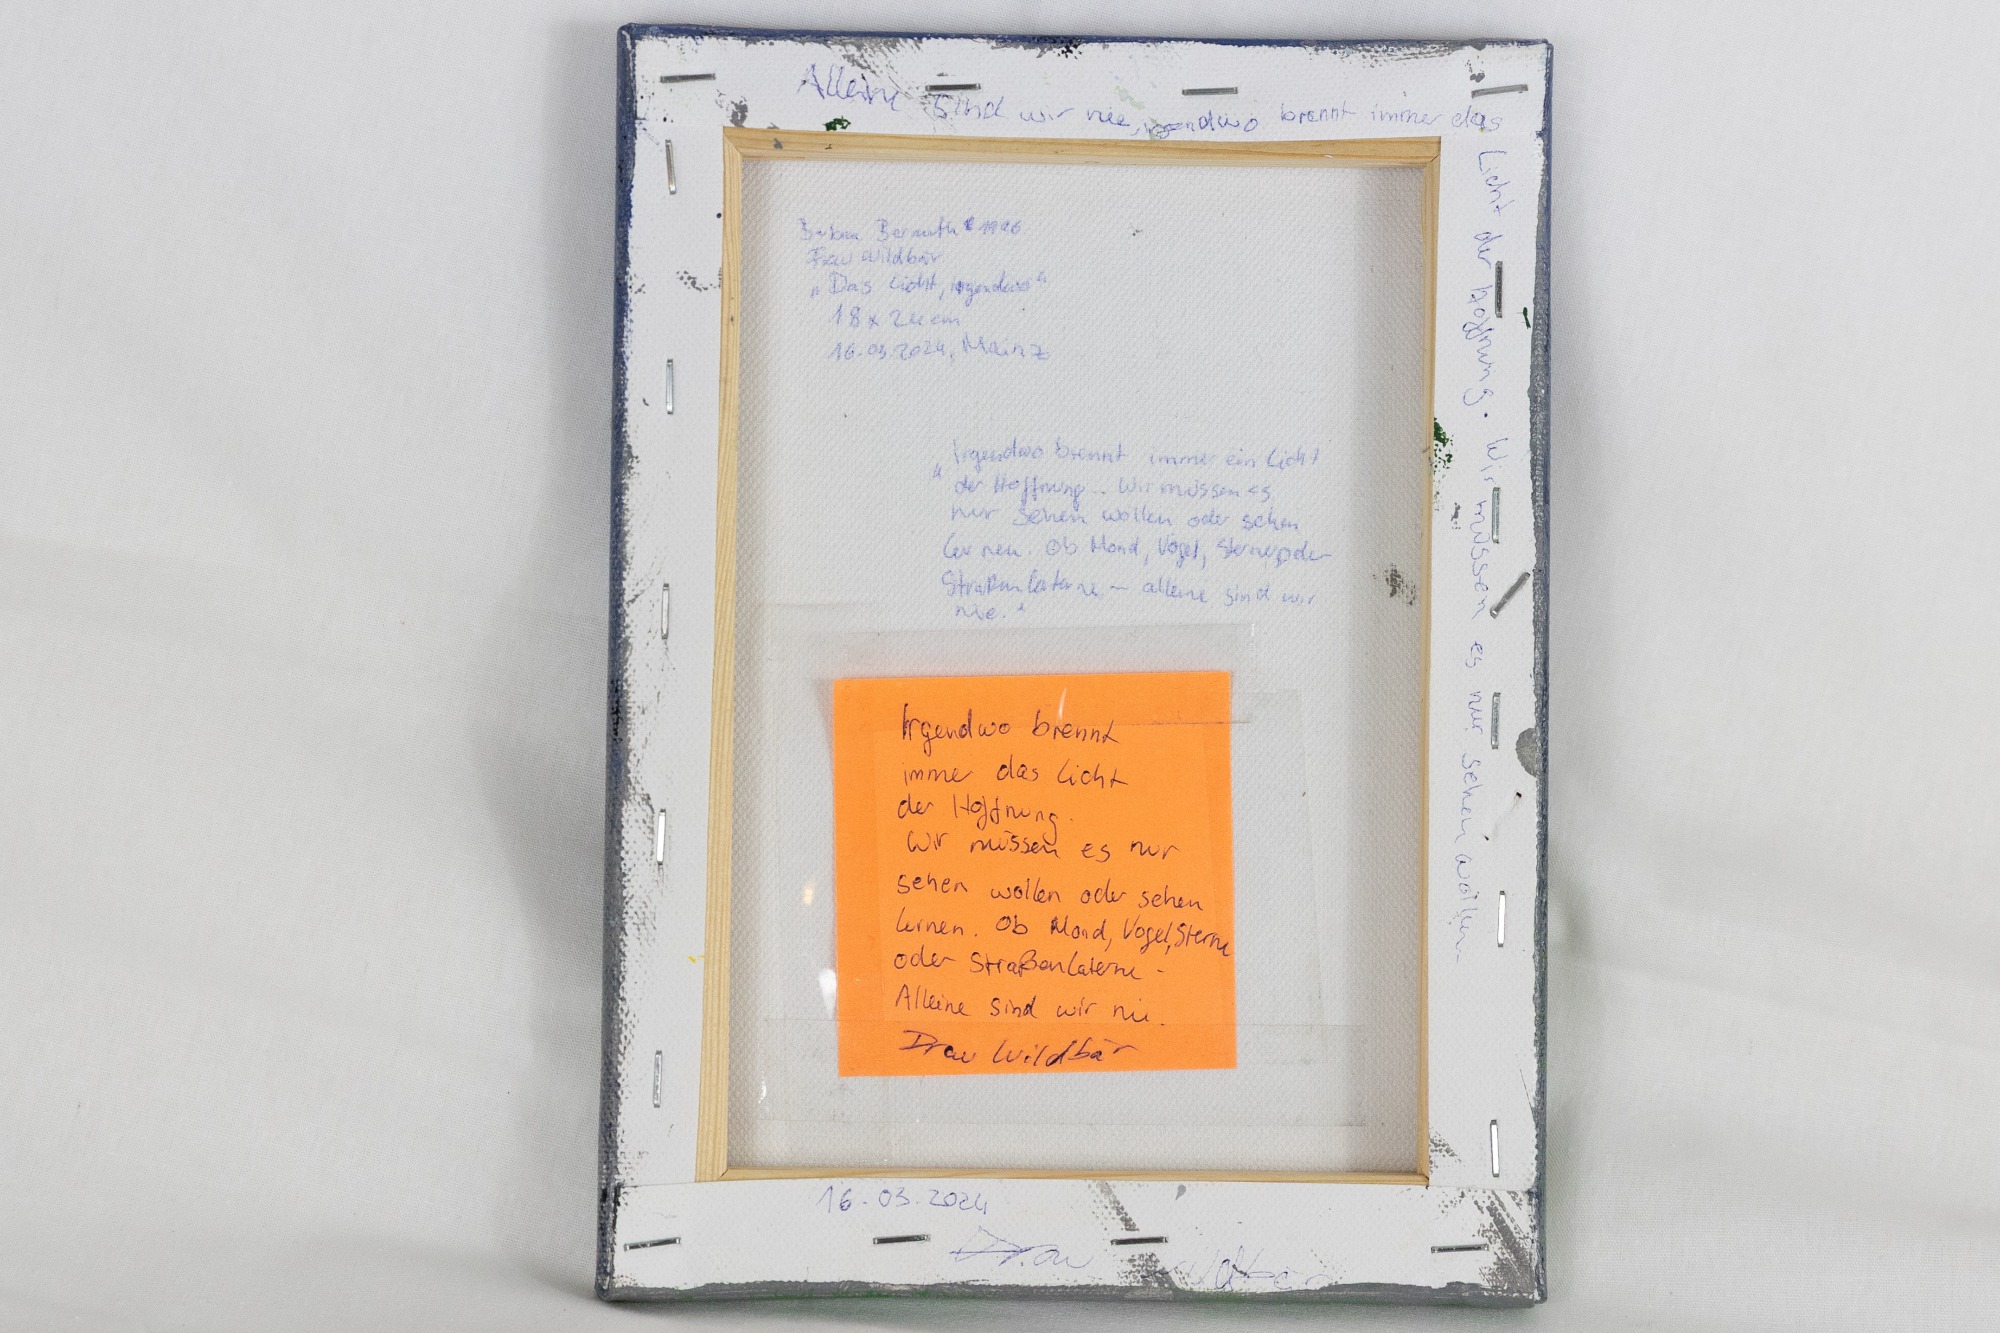 Alleine sind wir nie, irgendwo brennt immer das
Licht der Hoffnung. Wir müssen es nur sehen wollen
*1996
Frau Wildbär
"Das Licht, irgendwo"
18 x 24 cm
16.03.2024, Mainz
"Irgendwo brennt immer ein Licht
der Hoffnung.. Wir müssen es
nur sehen wollen oder sehen
lernen. Ob Mond, Vogel, Sterne oder
Straßenlaterne – alleine sind wir
nie."
Irgendwo brennt
immer das Licht
der Hoffnung.
Wir müssen es nur
sehen wollen oder sehen
lernen. Ob Mond, Vogel, Sterne
oder Straßenlaterne -
Alleine sind wir nie.
Frau Wildbär
16.03.2024
Frau Wildbär